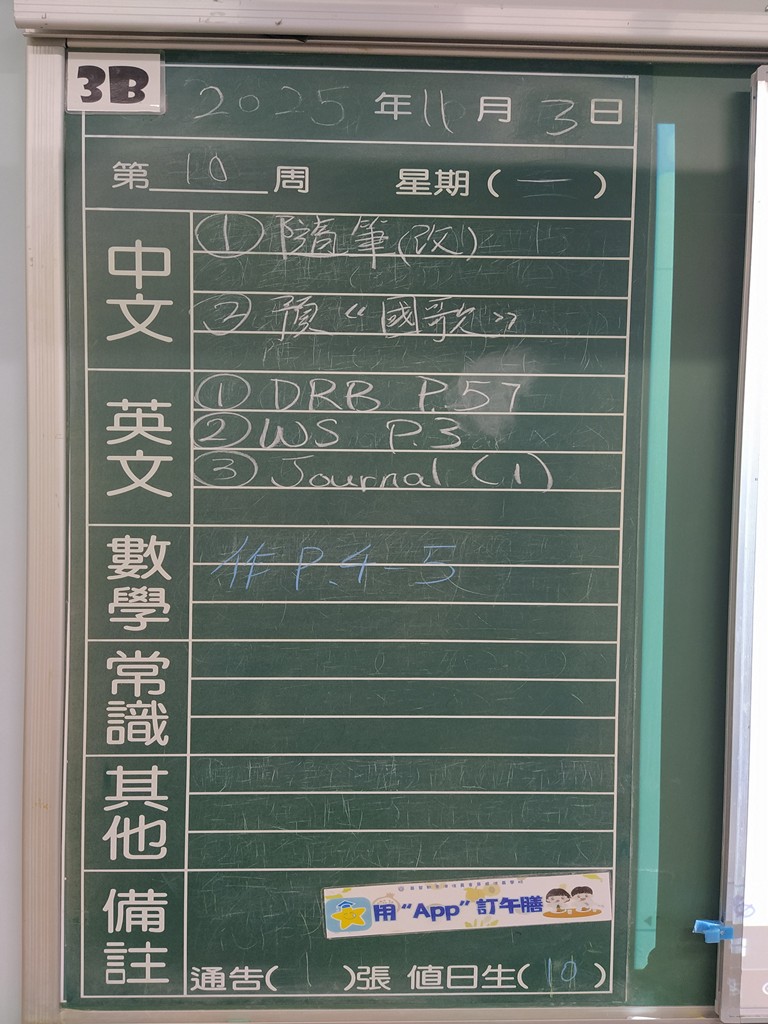 3B
2025年11月3日
第10周 星期(一)
中文
①隨筆(改)
②預《國歌》
英文
①DRB P.57
②WS P.3
③Journal (1)
數學
作 P.4-5
常識
其他
備註
用“App”訂午膳
通告(1)張 值日生(10)